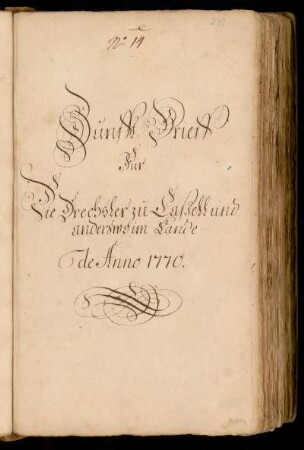 No 14
Zunfft Brieff
Für
Die Drechsler zu Caßell und
anderswo im Lande
de Anno 1770.